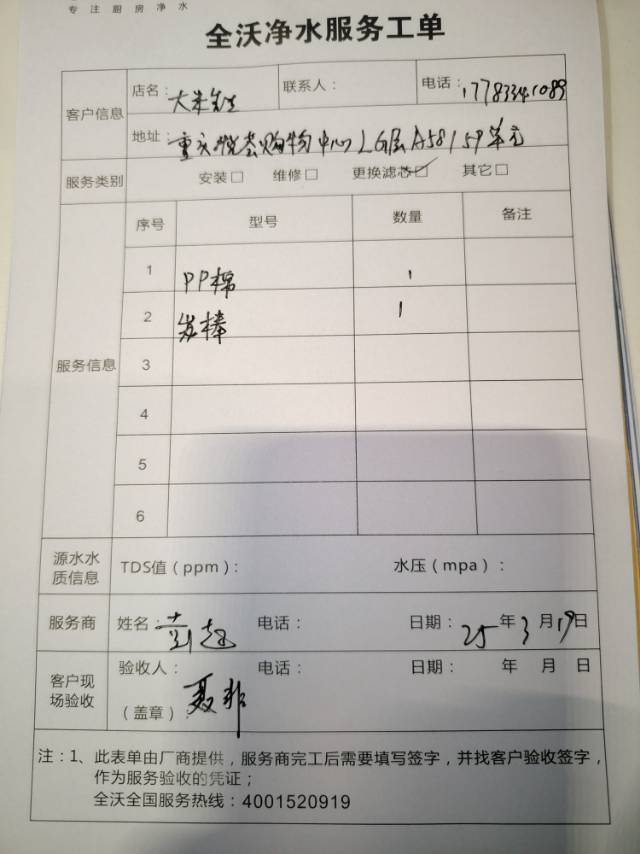 专注厨房净水
全沃净水服务工单
客户信息 店名：大米先生 联系人： 电话：17783341089
地址：重庆悦荟购物中心LG层A58/59单元
服务类别 安装□ 维修□ 更换滤芯☑ 其它□
服务信息 序号 型号 数量 备注
1 PP棉 1
2 炭棒 1
3
4
5
6
源水水质信息 TDS值（ppm）： 水压（mpa）：
服务商 姓名： 电话： 日期：25年3月19日
客户现场验收 验收人： 电话： 日期： 年 月 日
（盖章） 聂非
注：1、此表单由厂商提供，服务商完工后需要填写签字，并找客户验收签字，
作为服务验收的凭证；
全沃全国服务热线：4001520919